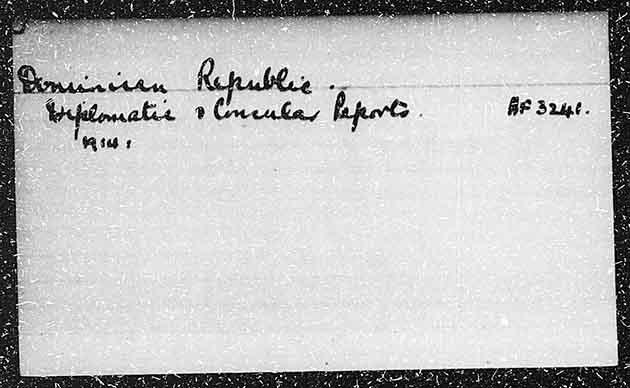 Dominican Republic.
Diplomatic & Consular Reports. AF 3241.
1914.